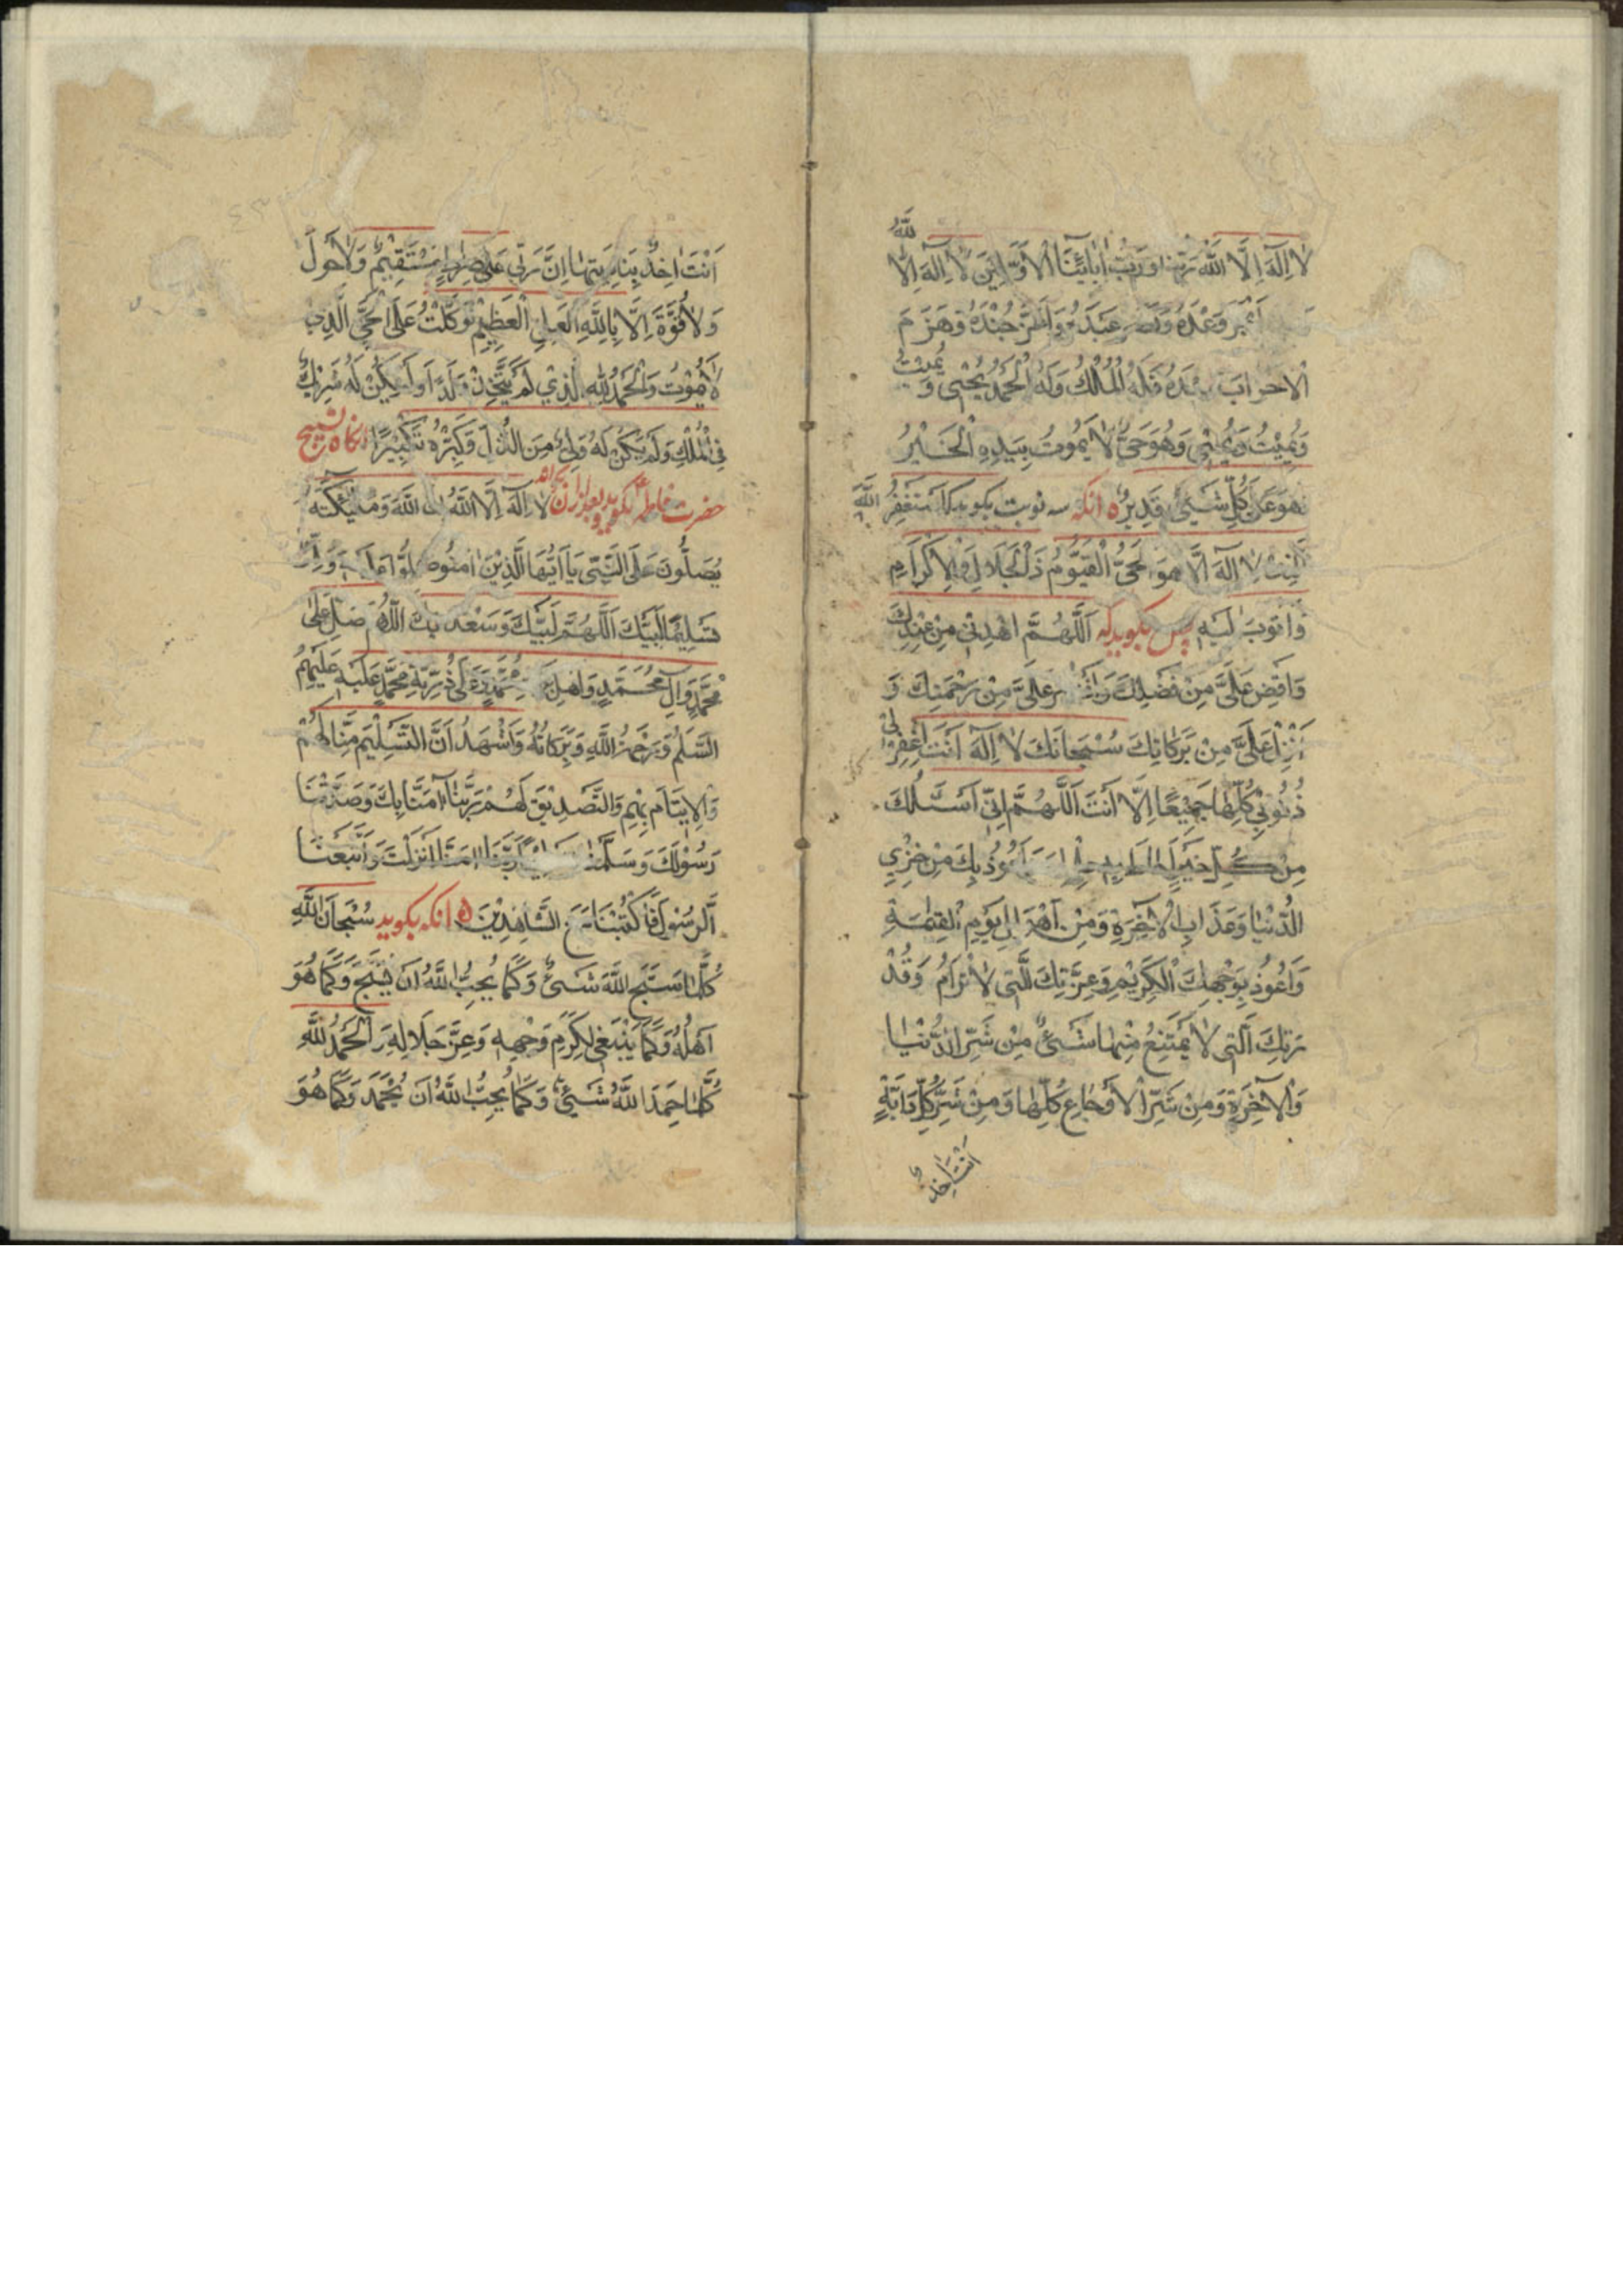 لا اِلهَ اِلَّا اللّٰهُ رَبُّنا وَرَبُّ اٰبائِنَا الْاَوَّلينَ لا اِلهَ اِلَّا اللّٰهُ
وَعْدَهُ وَنَصَرَ عَبْدَهُ وَاَعَزَّ جُنْدَهُ وَهَزَمَ
الاحزابَ فَلَهُ الْمُلْكُ وَلَهُ الْحَمْدُ يُحْيى وَ يُميتُ
وَيُميْتُ وَيُحْيى وَهُوَ حَىٌّ لا يَمُوتُ بِيَدِهِ الْخَيْرُ
هُوَ عَلىٰ كُلِّ شَيْئٍ قَديرٌ ه انكه سه نوبت بكويد كه استَغْفِرُ اللّٰهَ
الَّذى لا اِلهَ اِلَّا هُوَ الْحَىُّ الْقَيُّومُ ذَالْجَلالِ وَالْاِكْرامِ
وَاَتُوبُ اِلَيْهِ پس بكويد كه اَللّٰهُمَّ اهْدِنى مِنْ عِنْدِكَ
وَاَفِضْ عَلَىَّ مِنْ فَضْلِكَ وَانْشُرْ عَلَىَّ مِنْ رَحْمَتِكَ وَ
اَنْزِلْ عَلَىَّ مِنْ بَرَكاتِكَ سُبْحانَكَ لا اِلهَ اَنْتَ اغْفِرْ لى
ذُنُوبى كُلِّها جَميْعًا اِلَّا اَنْتَ اَللّٰهُمَّ اِنّى اَسْئَلُكَ
مِنْ كُلِّ خَيْرٍ اَعُوذُ بِكَ مِنْ خِزْيِ
الدُّنْيا وَعَذابِ الْاٰخِرَةِ وَمِنْ اَهْوالِ يَوْمِ الْقِيٰمَةِ
وَاَعُوذُ بِوَجْهِكَ الْكَرِيْمِ وَعِزَّتِكَ الَّتى لا تُرامُ وَقُدْ
رَتِكَ الَّتى لا يَمْتَنِعُ مِنْها شَىْءٌ مِنْ شَرِّ الدُّنْيا
وَالْاٰخِرَةِ وَمِنْ شَرِّ الْاَوْجاعِ كُلِّها وَمِنْ شَرِّ كُلِّ دابَّةٍ
اَنْتَ اٰخِذٌ
اَنْتَ اٰخِذٌ بِناصِيَتِها اِنَّ رَبّى عَلىٰ صِراطٍ مُسْتَقيْمٍ وَلا حَولَ
وَلا قُوَّةَ اِلَّا بِاللّٰهِ الْعَلِىِّ الْعَظيْمِ تَوَكَّلْتُ عَلَى الْحَىِّ الَّذى
لا يَمُوْتُ وَالْحَمْدُ لِلّٰهِ الَّذي لَمْ يَتَّخِذْ وَلَدًا وَلَمْ يَكُنْ لَهُ شَريْكٌ
فِى الْمُلْكِ وَلَمْ يَكُنْ لَهُ وَلِىٌّ مِنَ الذُّلِّ وَكَبِّرْهُ تَكْبيْرًا انكاه تسبيح
حضرت فاطمه ع بكويد و بعد ازان بكويد لا اِلهَ اِلَّا اللّٰهُ اِنَّ اللّٰهَ وَمَلٰئِكَتَهُ
يُصَلُّونَ عَلَى النَّبِىِّ يا اَيُّهَا الَّذيْنَ اٰمَنُوا صَلُّوا عَلَيْهِ وَسَلِّمُوا
تَسْليمًا لَبَّيْكَ اَللّٰهُمَّ لَبَّيْكَ وَسَعْدَيْكَ اَللّٰهُمَّ صَلِّ عَلىٰ
مُحَمَّدٍ وَاٰلِ مُحَمَّدٍ وَاَهْلِ مُحَمَّدٍ وَعَلىٰ ذُرِّيَّةِ مُحَمَّدٍ عَلَيْهِ عَلَيْهِمُ
السَّلامُ وَرَحْمَةُ اللّٰهِ وَبَرَكاتُهُ وَاَشْهَدُ اَنَّ التَّسْليْمَ مِنّا لَهُمْ
وَالْاِيتامَ بِهِمْ وَالتَّصْديْقَ لَهُمْ رَبَّنا اٰمَنّا بِكَ وَصَدَّقْنا
رَسُوْلَكَ وَسَلَّمْنا رَبَّنا اٰمَنّا بِما اَنْزَلْتَ وَاتَّبَعْنا
الرَّسُوْلَ فَاكْتُبْنا مَعَ الشّاهِديْنَ ه انكه بكويد سُبْحانَ اللّٰهِ
كُلَّما سَبَّحَ اللّٰهَ شَىْءٌ وَكَما يُحِبُّ اللّٰهُ اَنْ يُسَبَّحَ وَكَما هُوَ
اَهْلُهُ وَكَما يَنْبَغى لِكَرَمِ وَجْهِهِ وَعِزِّ جَلالِهِ وَالْحَمْدُ لِلّٰهِ
كُلَّما حَمِدَ اللّٰهَ شَيْئٌ وَكَما يُحِبُّ اللّٰهُ اَنْ يُحْمَدَ وَكَما هُوَ